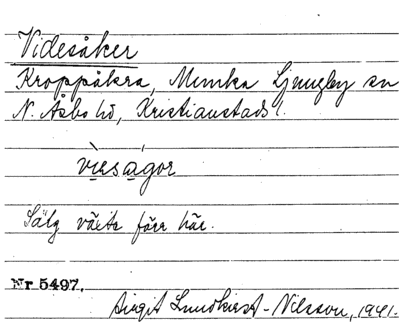 Videsåker
Kroppåkra, Munka Ljungby sn
N. Åsbo hd, Kristianstads l.
viesågor
Sälg växte förr här.
Nr 5497.
Birgit Lundkvist-Nilsson, 1941.